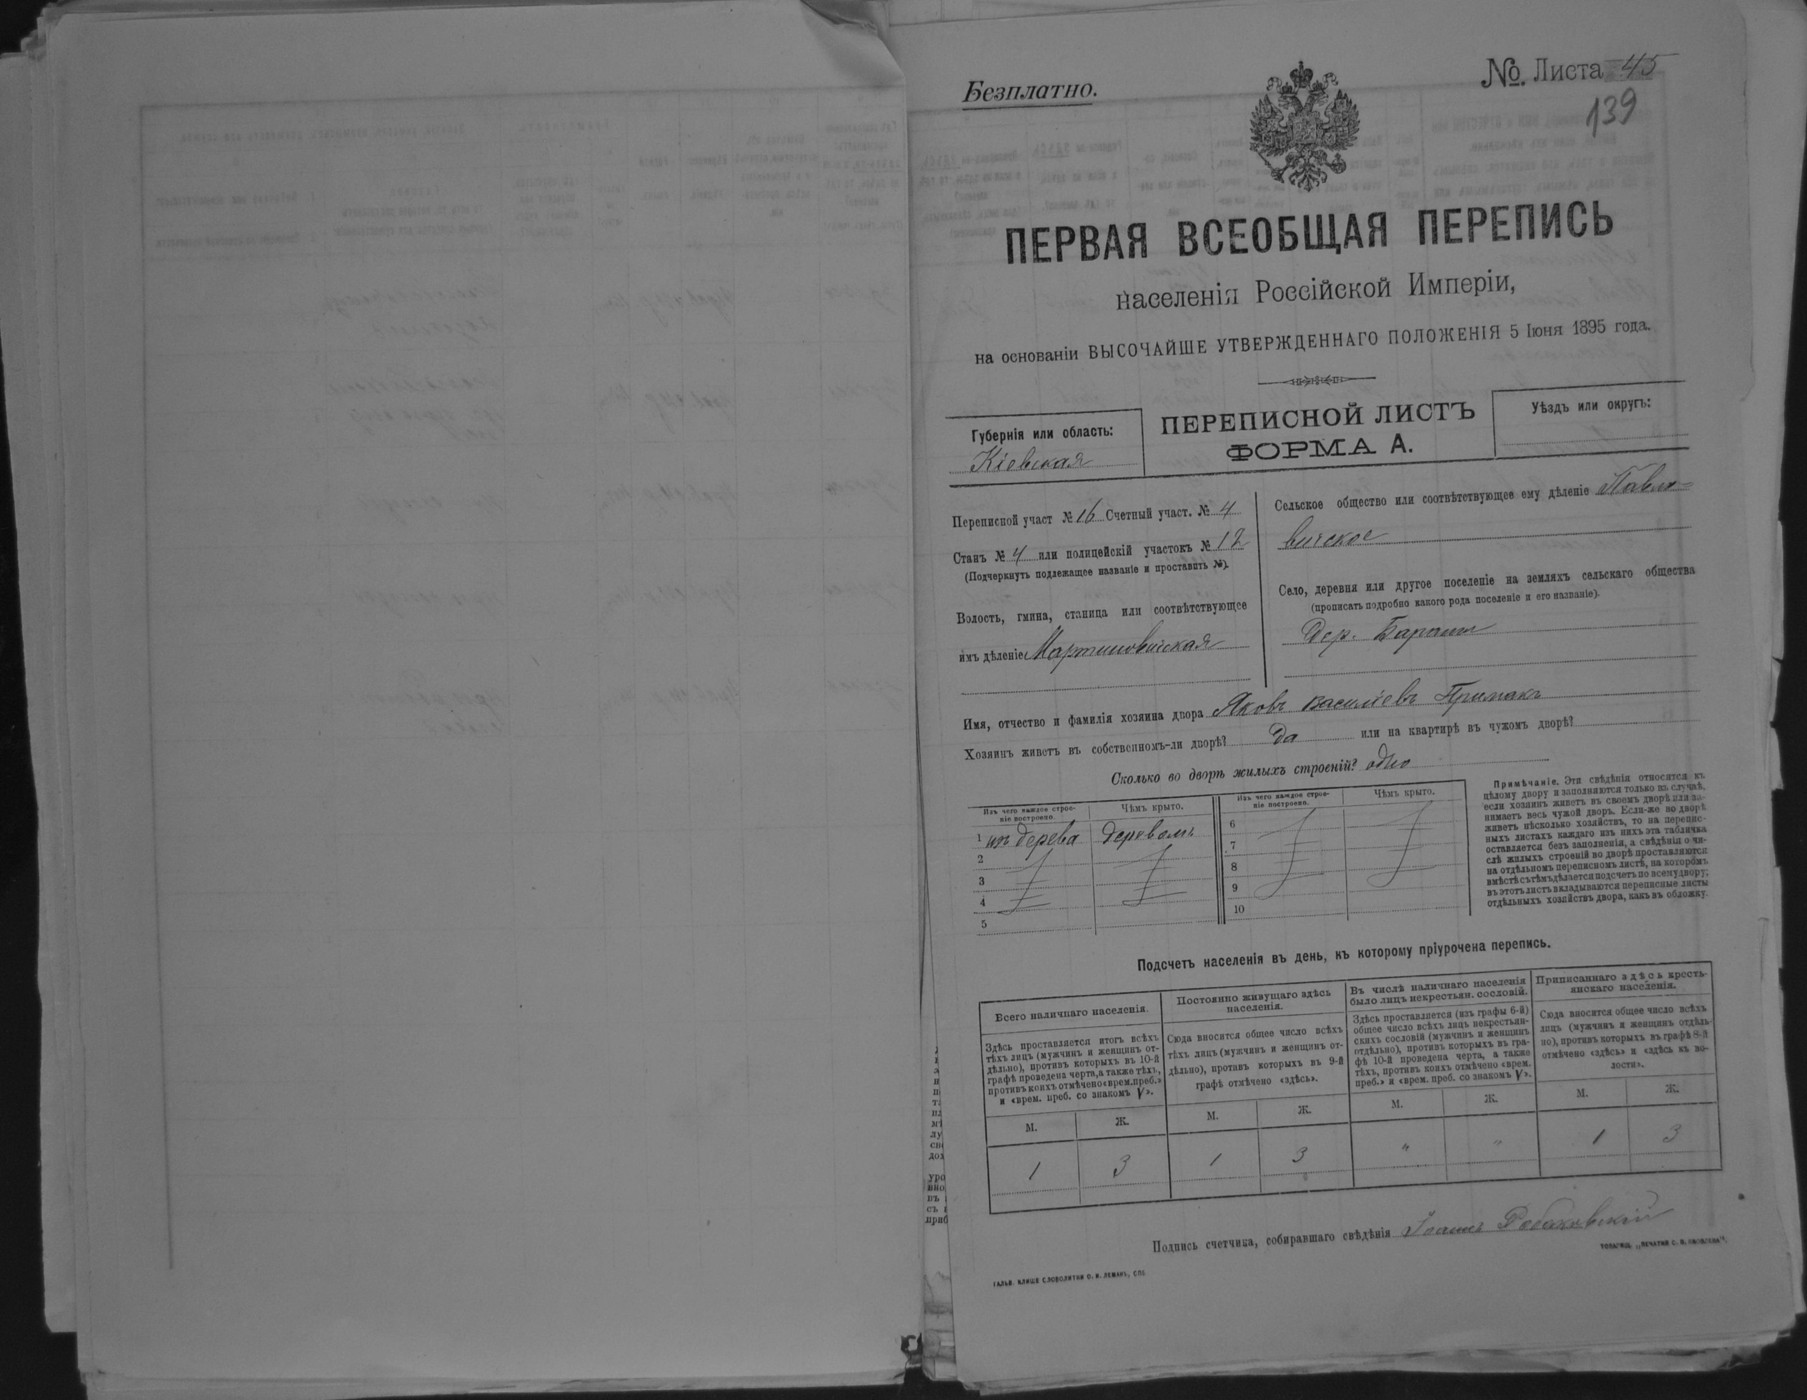 Безплатно.
№ Листа 45
139
ПЕРВАЯ ВСЕОБЩАЯ ПЕРЕПИСЬ
населенія Россійской Имперіи,
на основаніи ВЫСОЧАЙШЕ УТВЕРЖДЕННАГО ПОЛОЖЕНІЯ 5 Іюня 1895 года.
Губернія или область:
Кіевская
ПЕРЕПИСНОЙ ЛИСТЪ
ФОРМА А.
Уѣздъ или округъ:
Переписной участ № 16 Счетный участ. № 4
Станъ № 4 или полицейскій участокъ № 12
(Подчеркнуть подлежащее названіе и проставить №).
Волость, гмина, станица или соотвѣтствующее
имъ дѣленіе Мартиновийская
Сельское общество или соотвѣтствующее ему дѣленіе Павло-
вичское
Село, деревня или другое поселеніе на земляхъ сельскаго общества
(прописать подробно какого рода поселеніе и его названіе).
Дер.
Имя, отчество и фамилія хозяина двора Яковъ Василіевъ Примакъ
Хозяинъ живетъ въ собственномъ-ли дворѣ? Да или на квартирѣ въ чужомъ дворѣ?
Сколько во дворѣ жилыхъ строеній? одно
Изъ чего каждое строе-
ніе построено.
Чѣмъ крыто.
1 изъ дерева деревомъ
2
3
4
5
Изъ чего каждое строе-
ніе построено.
Чѣмъ крыто.
6
7
8
9
10
Примѣчаніе. Эти свѣдѣнія относятся къ
цѣлому двору и заполняются только въ случаѣ,
если хозяинъ живетъ въ своемъ дворѣ или за-
нимаетъ весь чужой дворъ. Если-же во дворѣ
живетъ нѣсколько хозяйствъ, то на перепис-
ныхъ листахъ каждаго изъ нихъ эта табличка
оставляется безъ заполненія, а свѣдѣнія о чи-
слѣ жилыхъ строеній во дворѣ проставляются
на отдѣльномъ переписномъ листѣ, на которомъ
вмѣстѣ съ тѣмъ дѣлается подсчетъ по всему двору;
въ этотъ листъ вкладываются переписные листы
отдѣльныхъ хозяйствъ двора, какъ въ обложку.
Подсчетъ населенія въ день, къ которому пріурочена перепись.
Всего наличнаго населенія.
Здѣсь проставляется итогъ всѣхъ
тѣхъ лицъ (мужчинъ и женщинъ от-
дѣльно), противъ которыхъ въ 10-й
графѣ проведена черта, а также тѣхъ,
противъ коихъ отмѣчено «врем. преб.»
и «врем. преб. со знакомъ V».
М. Ж.
1 3
Постоянно живущаго здѣсь
населенія.
Сюда вносится общее число всѣхъ
тѣхъ лицъ (мужчинъ и женщинъ от-
дѣльно), противъ которыхъ въ 9-й
графѣ отмѣчено «здѣсь».
М. Ж.
1 3
Въ числѣ наличнаго населенія
было лицъ некрестьян. сословій.
Здѣсь проставляется (изъ графы 6-й)
общее число всѣхъ лицъ некрестьян-
скихъ сословій (мужчинъ и женщинъ
отдѣльно), противъ которыхъ въ гра-
фѣ 10-й проведена черта, а также
тѣхъ, противъ коихъ отмѣчено «врем.
преб.» и «врем. преб. со знакомъ V».
М. Ж.
" "
Приписаннаго здѣсь кресть-
янскаго населенія.
Сюда вносится общее число всѣхъ
лицъ (мужчинъ и женщинъ отдѣль-
но), противъ которыхъ въ графѣ 8-й
отмѣчено «здѣсь» и «здѣсь въ во-
лости».
М. Ж.
1 3
Подпись счетчика, собиравшаго свѣдѣнія
ГАЛЬВ. КЛИШЕ СЛОВОЛИТНИ О. И. ЛЕМАНЪ, СПБ.